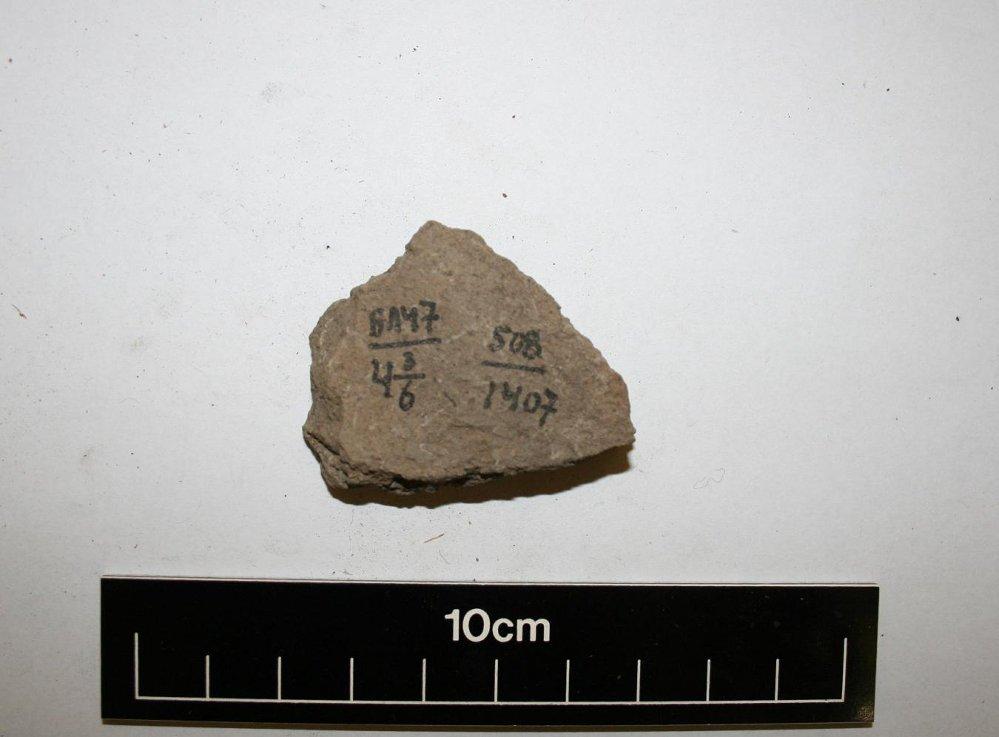 БЛ47
4 3/6
508
1407
10cm